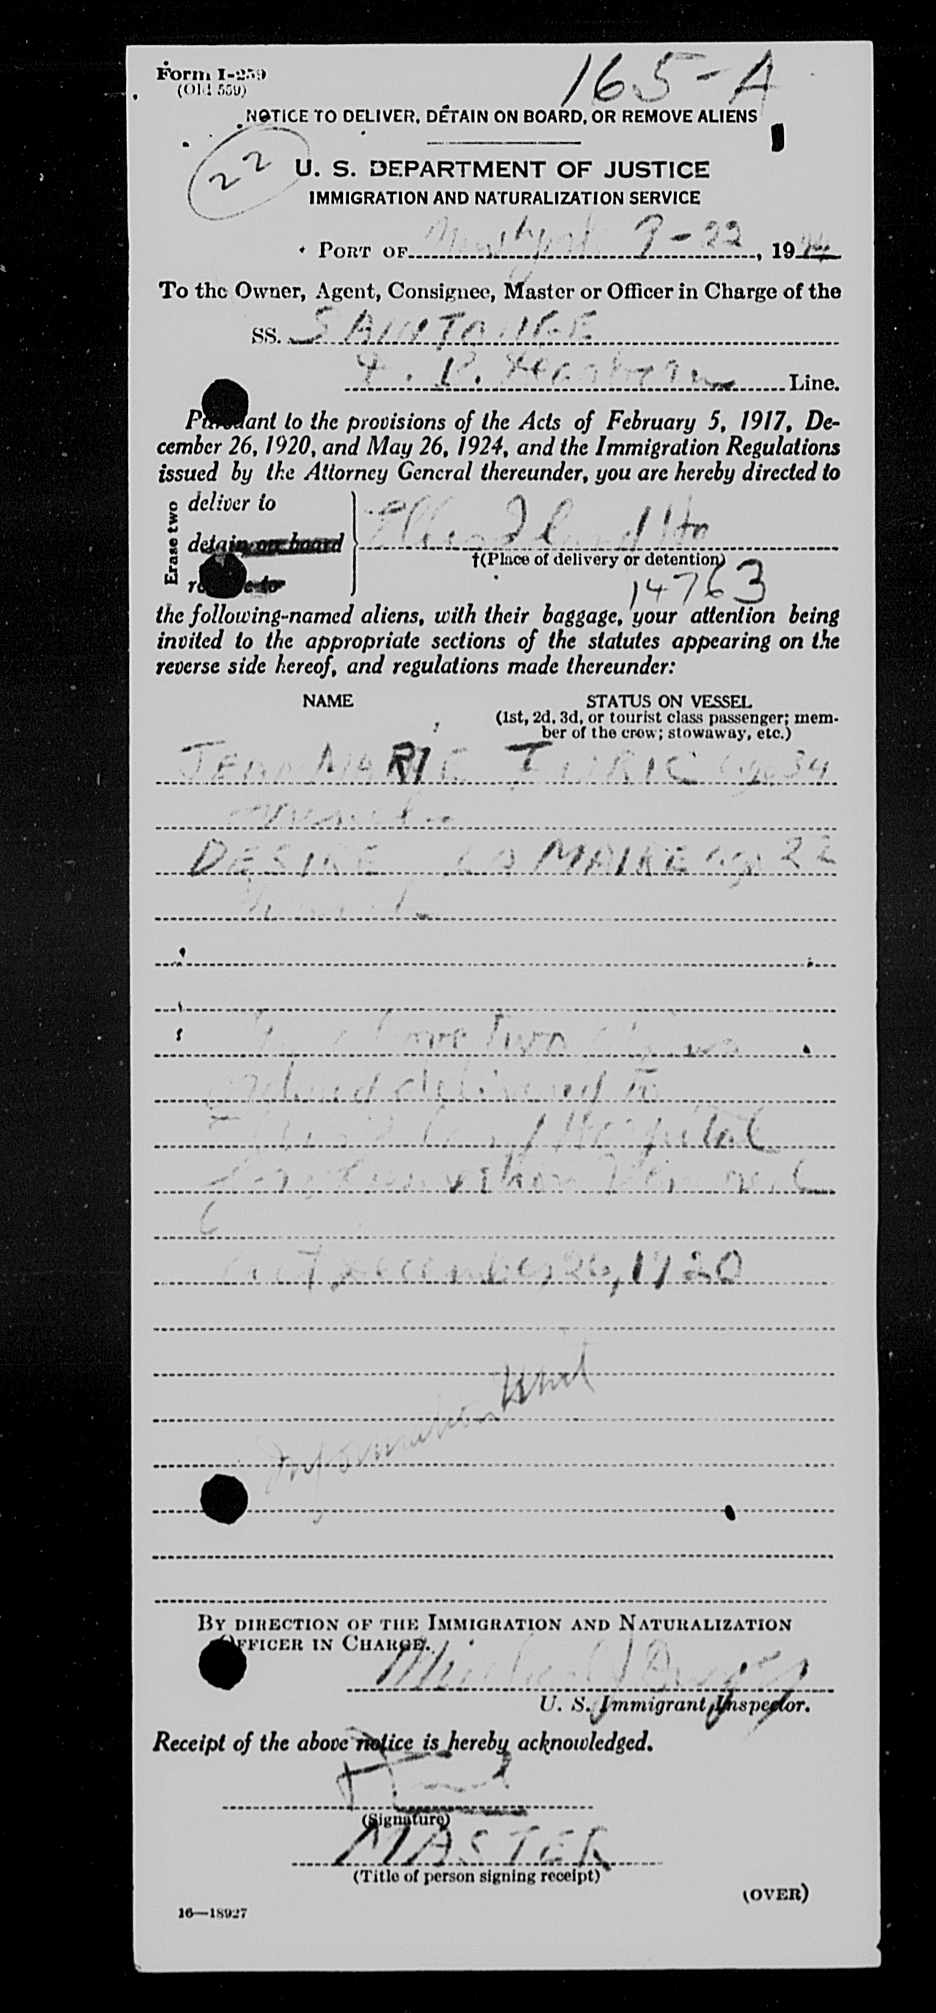 Form I-259
(Old 559)
165-A
NOTICE TO DELIVER, DETAIN ON BOARD, OR REMOVE ALIENS
22
U. S. DEPARTMENT OF JUSTICE
IMMIGRATION AND NATURALIZATION SERVICE
PORT OF New York 9-22, 19
To the Owner, Agent, Consignee, Master or Officer in Charge of the
SS.
Line.
Pursuant to the provisions of the Acts of February 5, 1917, De-
cember 26, 1920, and May 26, 1924, and the Immigration Regulations
issued by the Attorney General thereunder, you are hereby directed to
Erase two
deliver to
detain on board
remove to
Ellis Island
†(Place of delivery or detention)
14763
the following-named aliens, with their baggage, your attention being
invited to the appropriate sections of the statutes appearing on the
reverse side hereof, and regulations made thereunder:
NAME STATUS ON VESSEL
(1st, 2d, 3d, or tourist class passenger; mem-
ber of the crew; stowaway, etc.)
JEAN MARIE age 34
French
DESIRE LAMAIRE age 22
French
above two aliens
delivered to
Ellis Island Hospital
observation
act December 26, 1920
Information
BY DIRECTION OF THE IMMIGRATION AND NATURALIZATION
OFFICER IN CHARGE.
Michael J
U. S. Immigrant Inspector.
Receipt of the above notice is hereby acknowledged.
(Signature)
MASTER
(Title of person signing receipt)
(OVER)
16—18927